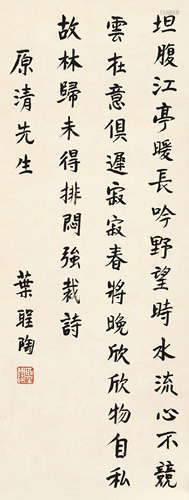 坦腹江亭暖長吟野望時水流心不競
雲在意俱遲寂寂春將晚欣欣物自私
故林歸未得排悶強裁詩
原清先生
葉聖陶